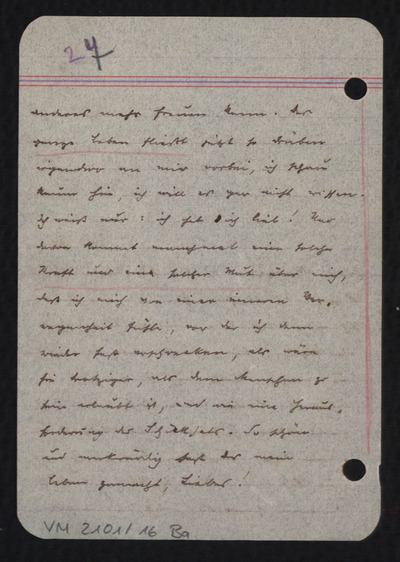 24
anderes mehr freuen kann. Das
ganze Leben fließt jetzt so drüben
irgendwo an mir vorbei, ich schau
kaum hin, ich will es gar nicht wissen.
Ich weiß nur: ich hab Dich lieb! Und
davon kommt manchmal eine solche
Kraft und eine solcher Mut über mich,
daß ich mich von einer inneren Ver-
wegenheit fühle, vor der ich dann
wieder fast erschrecken, als wäre
sie trotziger, als dem Menschen zu
sein erlaubt ist, und wie eine Heraus-
forderung des Schicksals. So schön
und merkwürdig hast Du mein
Leben gemacht, Liebes!
VM 2101/16 Ba